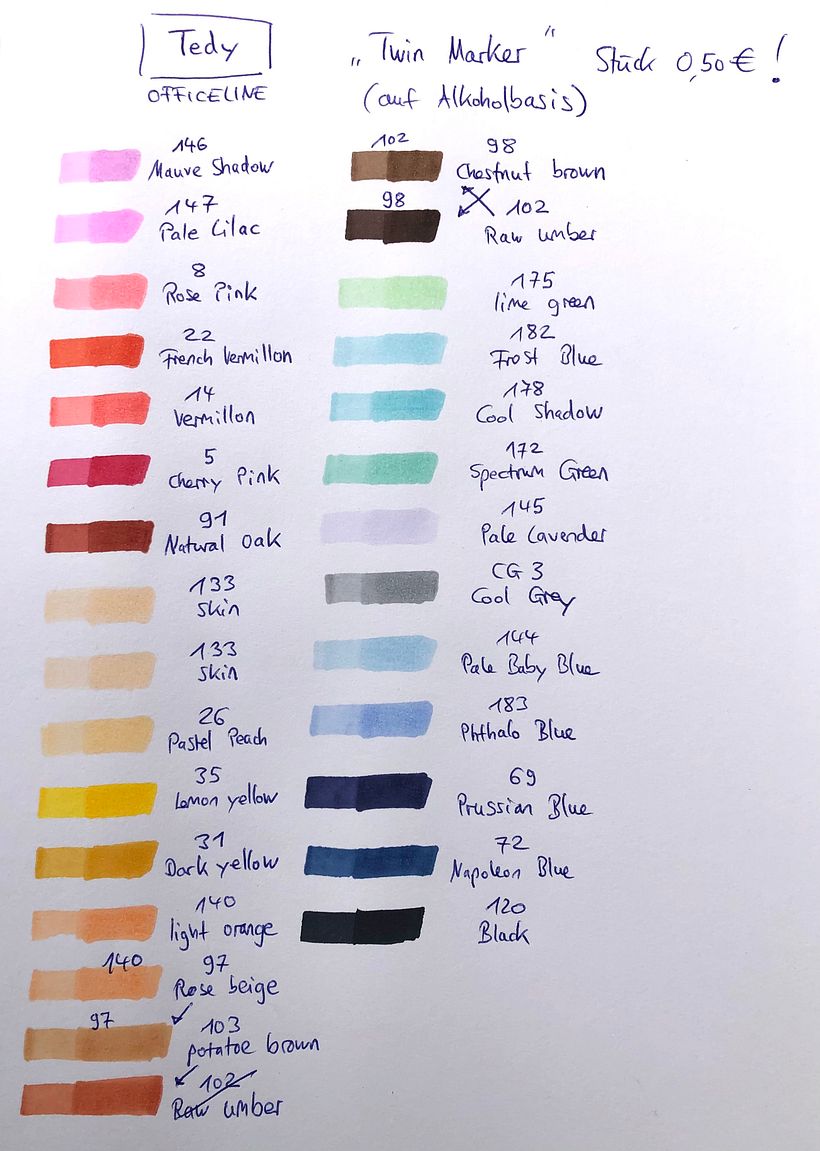 Tedy
OFFICELINE
„Twin Marker“
(auf Alkoholbasis)
Stück 0,50€!
146
Mauve Shadow
147
Pale Lilac
8
Rose Pink
22
French Vermillon
14
Vermillon
5
Cherry Pink
91
Natural Oak
133
Skin
133
Skin
26
Pastel Peach
35
Lemon yellow
31
Dark yellow
140
light orange
140
97
Rose beige
97
103
potatoe brown
102
Raw umber
102
98
Chestnut brown
98
102
Raw umber
175
lime green
182
Frost Blue
178
Cool Shadow
172
Spectrum Green
145
Pale Lavender
CG 3
Cool Grey
144
Pale Baby Blue
183
Phthalo Blue
69
Prussian Blue
72
Napoleon Blue
120
Black